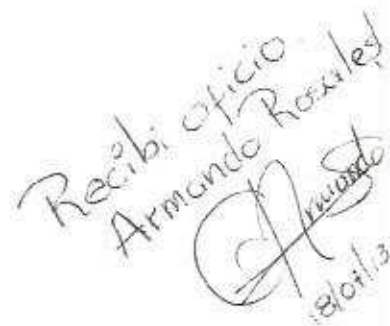 Recibi oficio
Armando Rosales
Armando
18/07/13